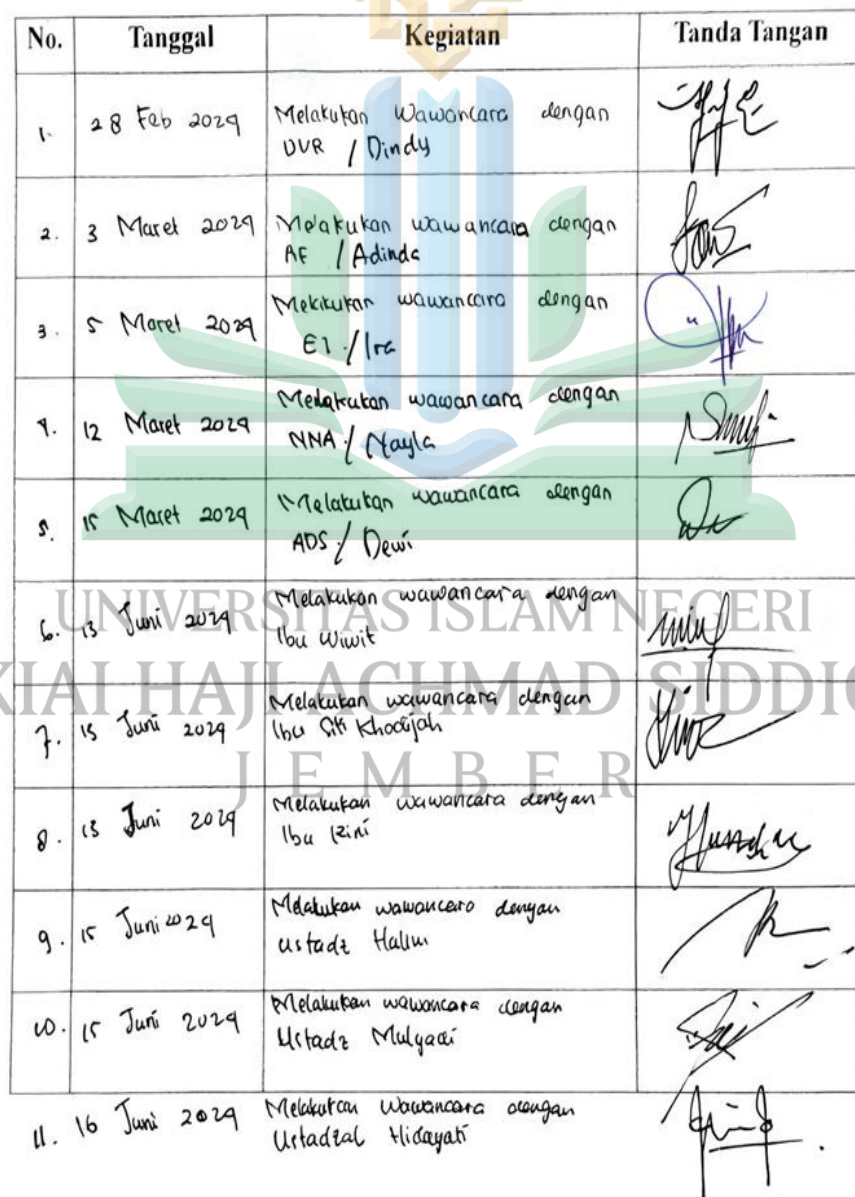 No. Tanggal Kegiatan Tanda Tangan
1. 28 Feb 2024 Melakukan wawancara dengan
DVR / Dindy
2. 3 Maret 2024 Melakukan wawancara dengan
AF / Adinda
3. 5 Maret 2024 Melakukan wawancara dengan
EI / Ira
4. 12 Maret 2024 Melakukan wawancara dengan
NNA / Nayla
5. 15 Maret 2024 Melakukan wawancara dengan
ADS / Dewi
6. 13 Juni 2024 Melakukan wawancara dengan
Ibu Wiwit
7. 15 Juni 2024 Melakukan wawancara dengan
Ibu Siti Khodijah
8. 13 Juni 2024 Melakukan wawancara dengan
Ibu Rini
9. 15 Juni 2024 Melakukan wawancara dengan
Ustadz Halim
10. 15 Juni 2024 Melakukan wawancara dengan
Ustadz Mulyadi
11. 16 Juni 2024 Melakukan wawancara dengan
Ustadzah Hidayati
UNIVERSITAS ISLAM NEGERI
KIAI HAJI ACHMAD SIDDIQ
JEMBER